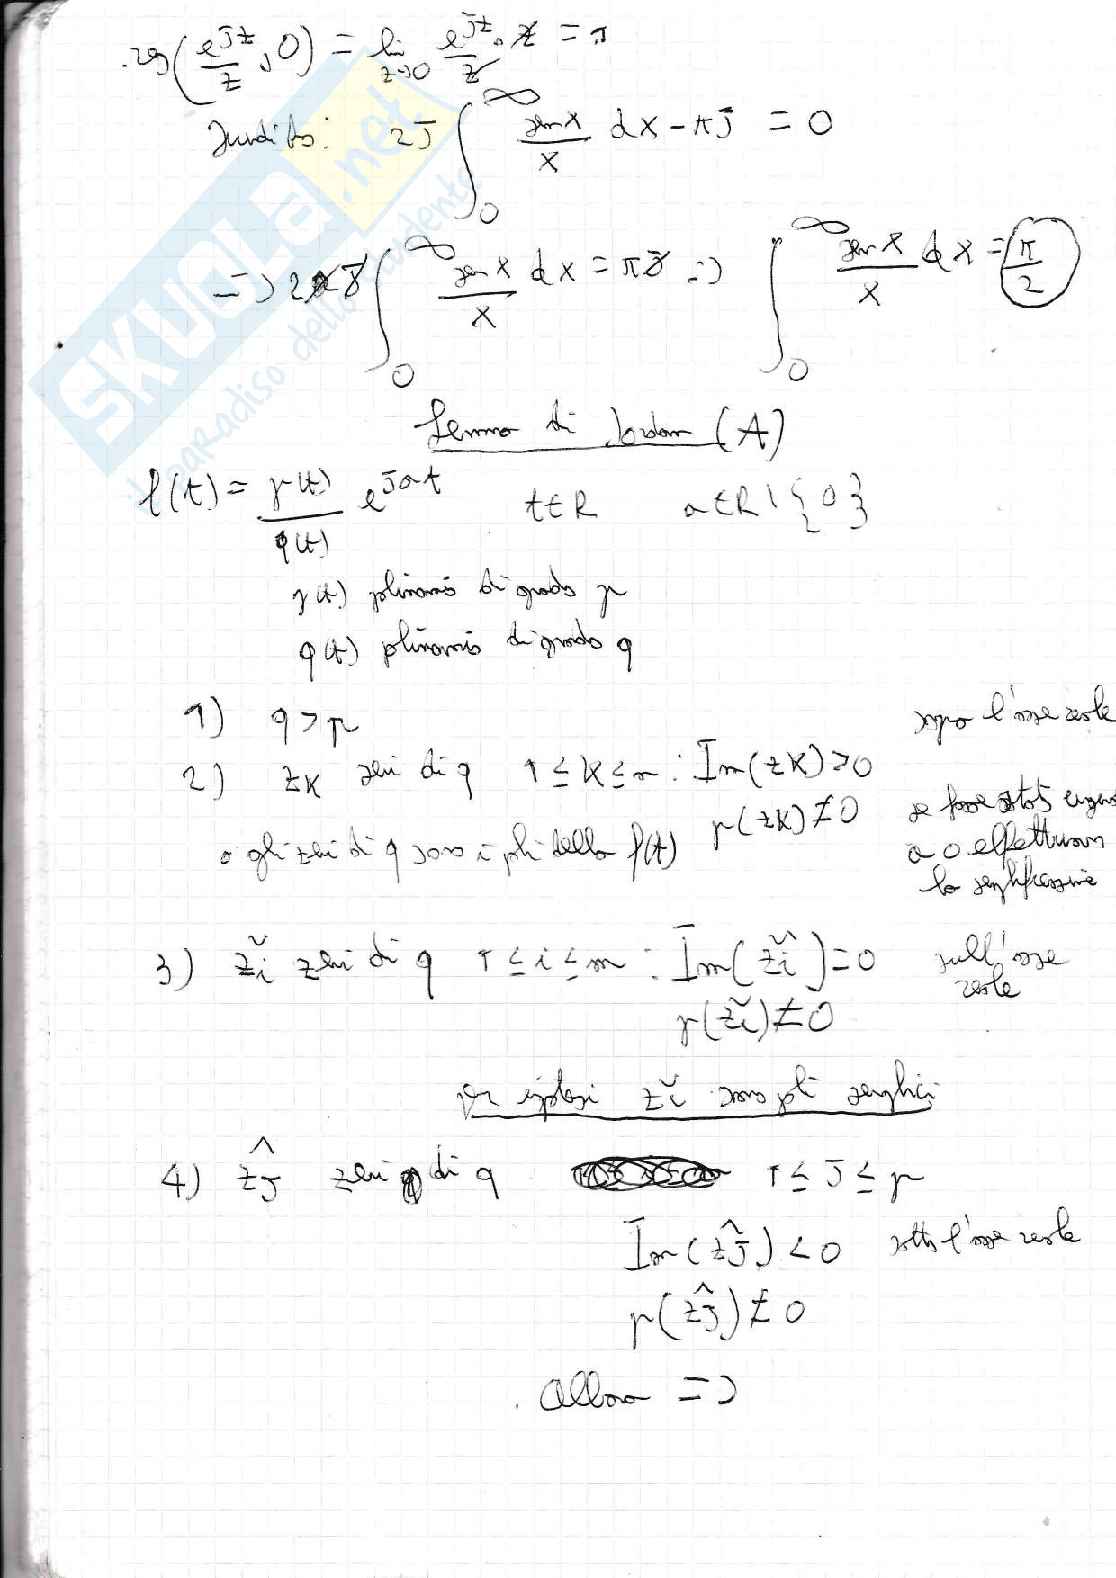 res(e^{jz}/z, 0) = lim_{z→0} e^{jz}/z · z = π
quindi: 2j ∫_0^∞ sen x/x dx - πj = 0
=> 2j ∫_0^∞ sen x/x dx = πj => ∫_0^∞ sen x/x dx = π/2
Lemma di Jordan (A)
f(t) = p(t)/q(t) e^{jat} t∈R a∈R\{0}
p(t) polinomio di grado p
q(t) polinomio di grado q
1) q>p sopra l'asse reale
2) zk zeri di q 1≤k≤n: Im(zk)>0
p(zk)≠0 se fosse stato uguale
o gli zeri di q sono i poli della f(t) a 0 effettuavo
la semplificazione
3) ži zeri di q 1≤i≤m: Im(ži)=0 sull'asse reale
p(ži)≠0
per ipotesi ži sono poli semplici
4) ẑj zeri di q 1≤j≤p
Im(ẑj)<0 sotto l'asse reale
p(ẑj)≠0
Allora =>
SKUOLA.net
il paradiso dello studente